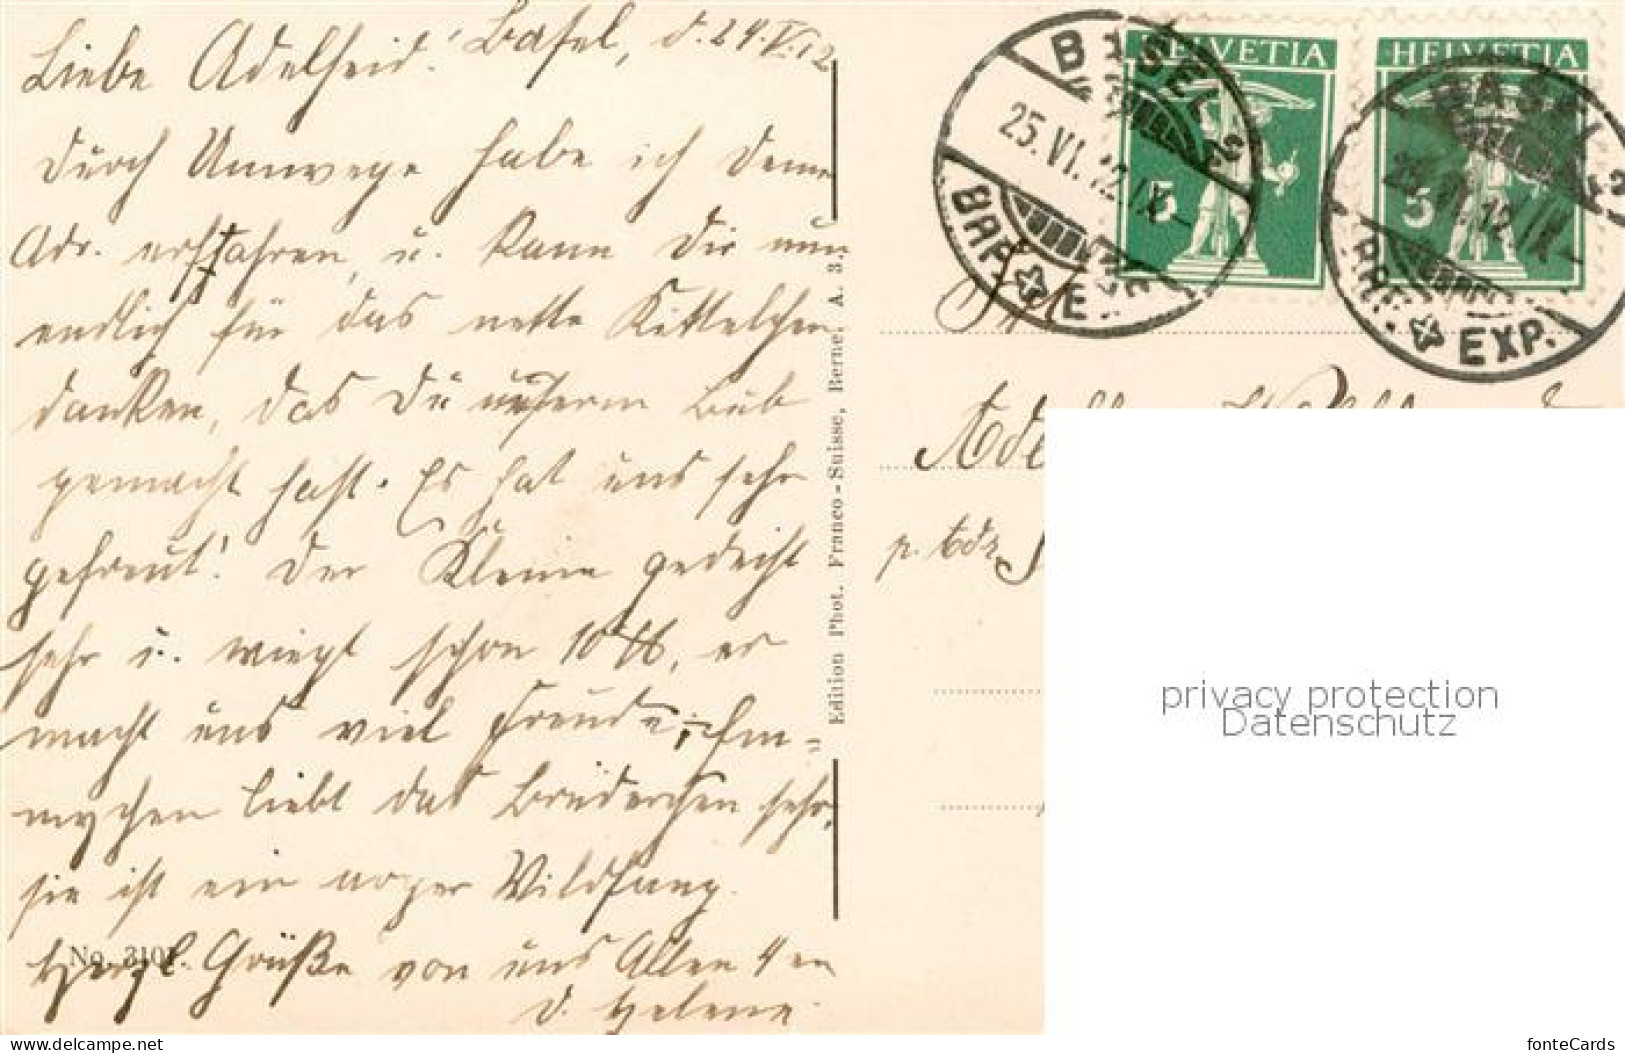 Basel, d. 24. V. 12
Liebe Adelheid!
Durch Umwege habe ich Deine
Adr. erfahren, u. kann Dir nun
endlich für das nette Kittelchen
danken, das Du unserm Bub
gemacht hast. Es hat uns sehr
gefreut! Der Kleine gedeiht
sehr u. wiegt schon 10 ℔, er
macht uns viel Freude; Em-
mychen liebt das Brüderchen sehr,
sie ist ein arger Wildfang.
Herzl. Grüße von uns Allen 4 en
d. Helene.
No. 3101.
Edition Phot. Franco-Suisse, Berne. A. 3.
HELVETIA
5
HELVETIA
5
BASEL 2
25.VI.12.IX–
BRF. EXP.
BASEL 2
25.VI.12.IX–
BRF. EXP.
Frl.
Ade
p. Adr.
privacy protection
Datenschutz
https://www.delcampe.net
fonteCards